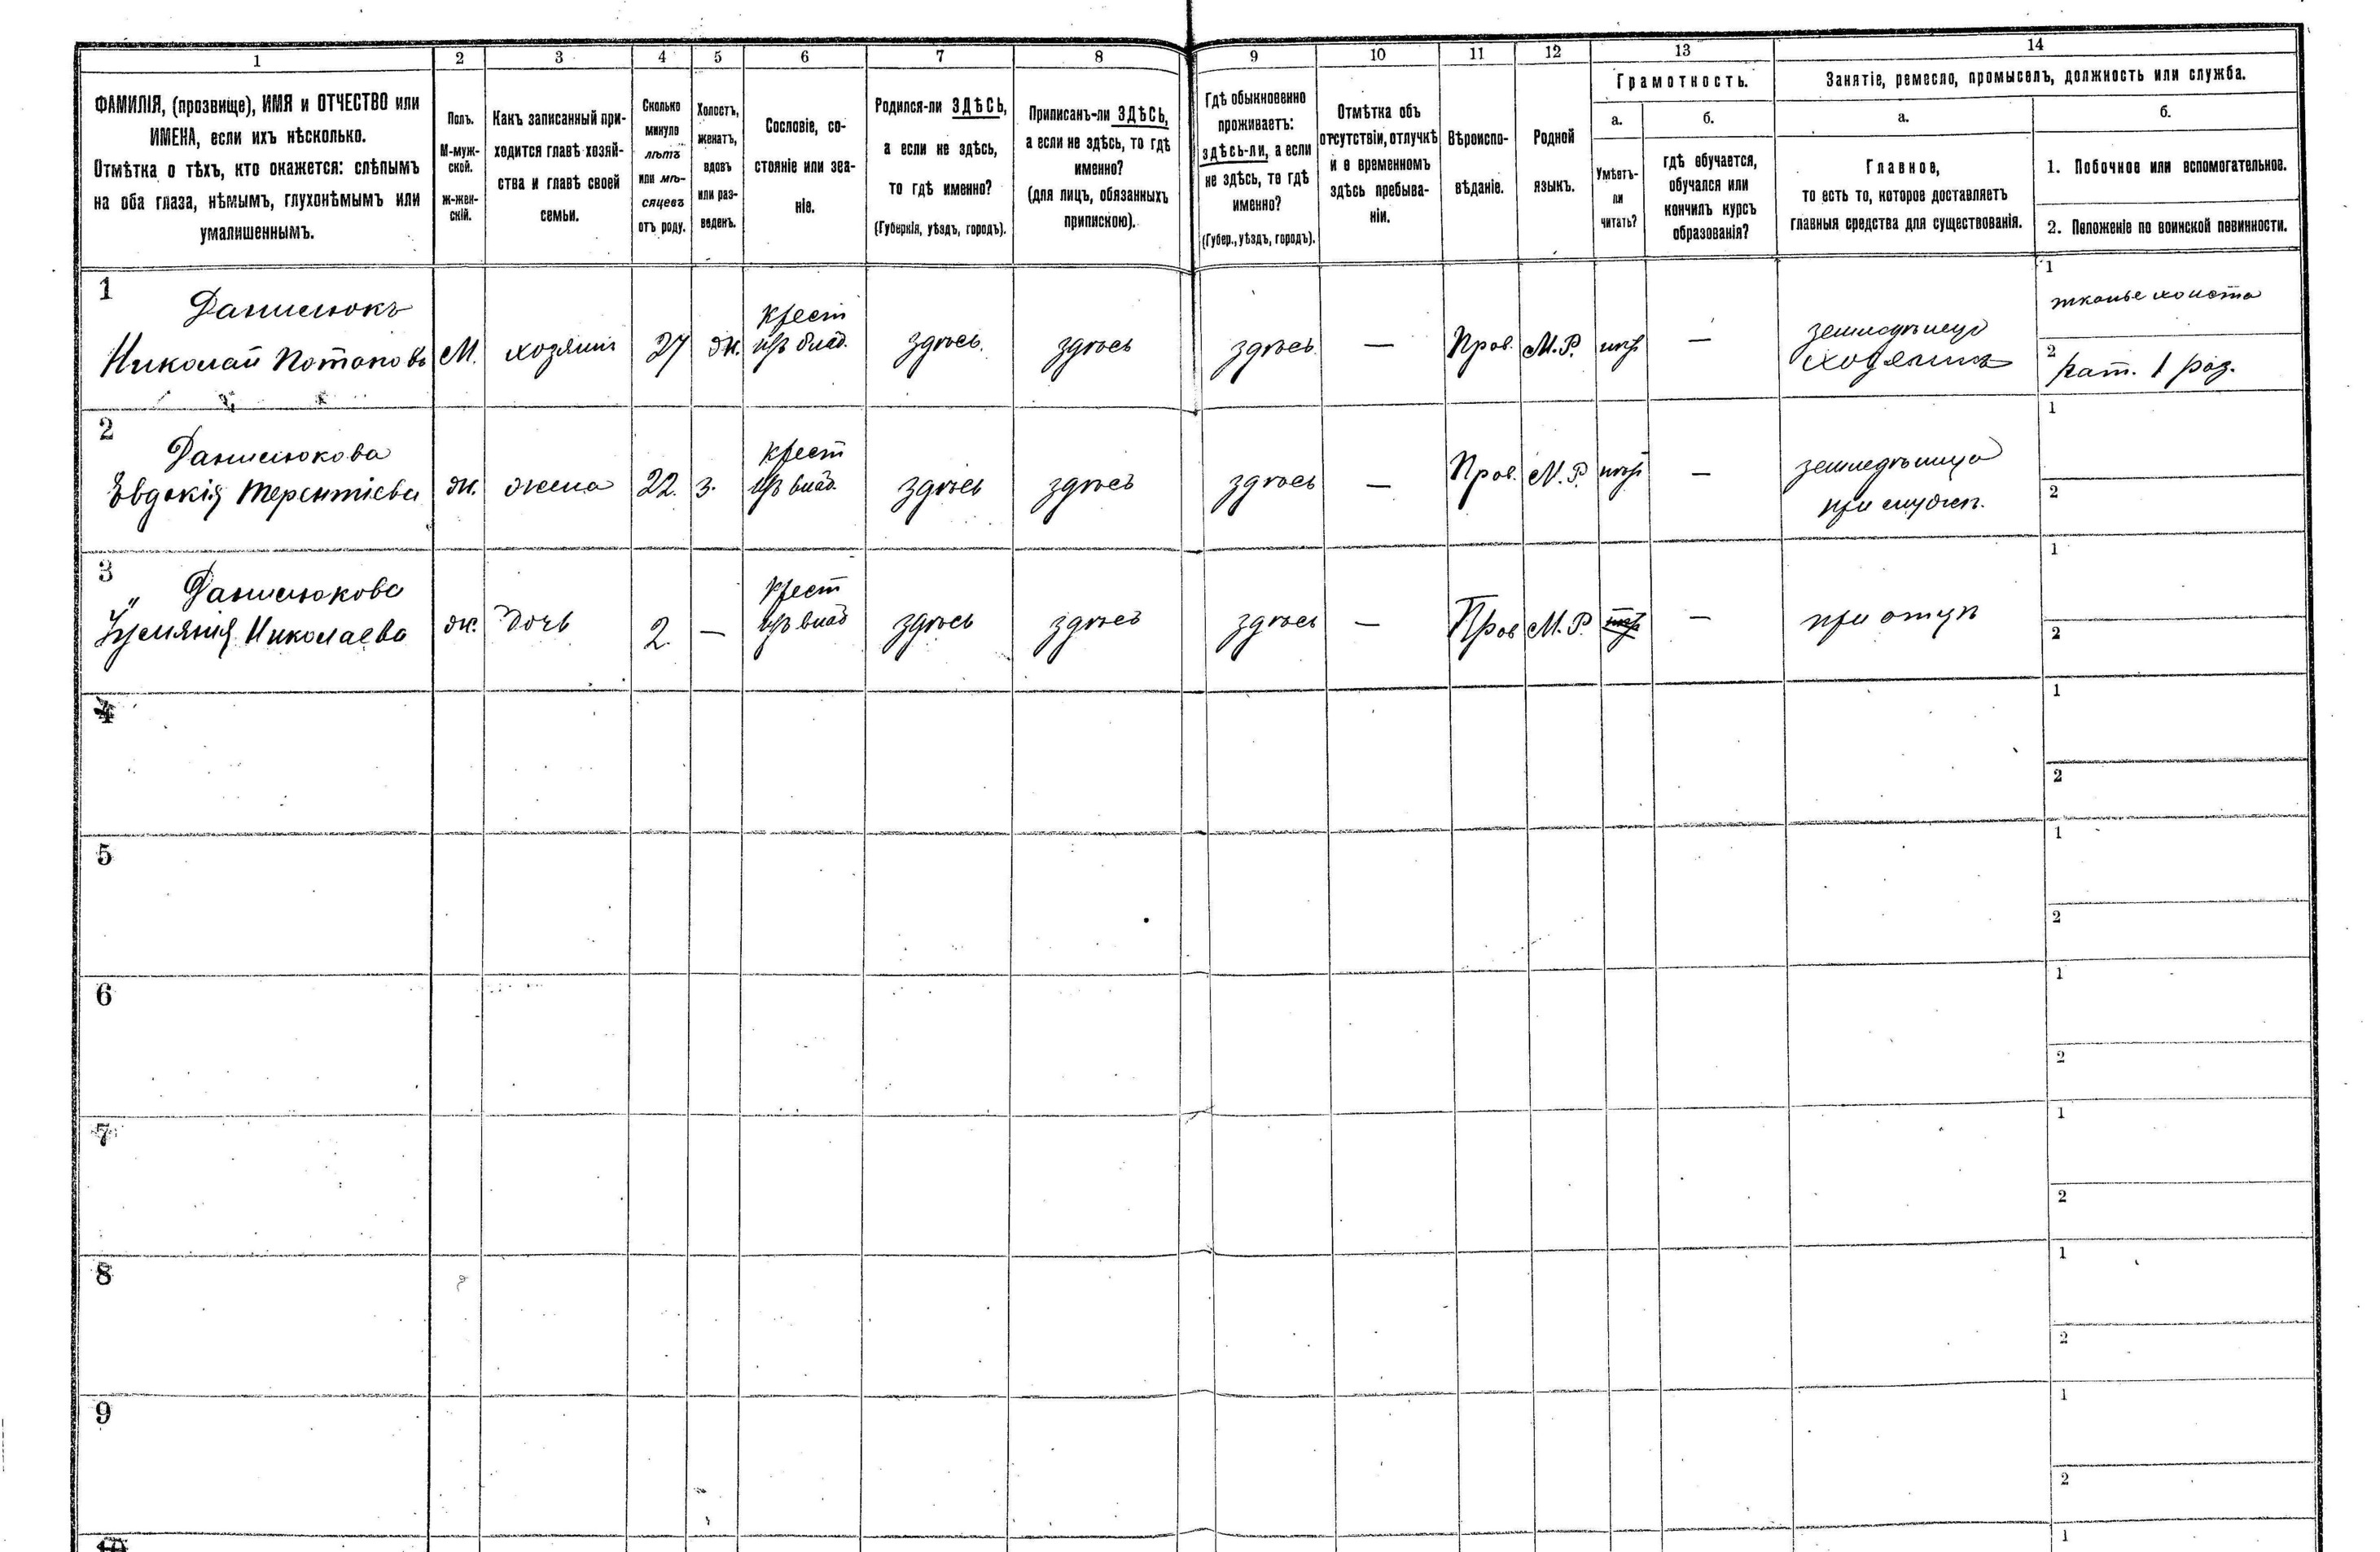 1 2 3 4 5 6 7 8 9 10 11 12 13 14
ФАМИЛІЯ, (прозвище), ИМЯ и ОТЧЕСТВО или
ИМЕНА, если ихъ нѣсколько.
Отмѣтка о тѣхъ, кто окажется: слѣпымъ
на оба глаза, нѣмымъ, глухонѣмымъ или
умалишеннымъ.
Полъ.
М-муж-
ской.
Ж-жен-
скій.
Какъ записанный при-
ходится главѣ хозяй-
ства и главѣ своей
семьи.
Сколько
минуло
лѣтъ
или мѣ-
сяцевъ
отъ роду.
Холостъ,
женатъ,
вдовъ
или раз-
веденъ.
Сословіе, со-
стояніе или зва-
ніе.
Родился-ли ЗДѢСЬ,
а если не здѣсь,
то гдѣ именно?
(Губернія, уѣздъ, городъ).
Приписанъ-ли ЗДѢСЬ,
а если не здѣсь, то гдѣ
именно?
(для лицъ, обязанныхъ
припискою).
Гдѣ обыкновенно
проживаетъ:
здѣсь-ли, а если
не здѣсь, то гдѣ
именно?
(Губер., уѣздъ, городъ).
Отмѣтка объ
отсутствіи, отлучкѣ
и о временномъ
здѣсь пребыва-
ніи.
Вѣроиспо-
вѣданіе.
Родной
языкъ.
Грамотность.
а.
Умѣетъ-
ли
читать?
б.
гдѣ обучается,
обучался или
кончилъ курсъ
образованія?
Занятіе, ремесло, промыселъ, должность или служба.
а.
Главное,
то есть то, которое доставляетъ
главныя средства для существованія.
б.
1. Побочное или вспомогательное.
2. Положеніе по воинской повинности.
1
Данилюкъ
Николай Потаповъ
М.
хозяинъ
27
ж.
крест
изъ влад.
здѣсь
здѣсь
здѣсь
—
Прав.
М.Р.
—
земледѣлецъ
хозяинъ
1
тканье холста
2
Рат. 1 раз.
2
Данилюкова
Евдокія Терентіева
ж.
жена
22.
з.
крест
изъ влад.
здѣсь
здѣсь
здѣсь
—
Прав.
М.Р.
—
при мужѣ.
1
2
3
Данилюкова
Николаева
ж.
дочь
2.
—
крест
изъ влад
здѣсь
здѣсь
здѣсь
—
Прав
М.Р.
—
при отцѣ
1
2
4
1
2
5
1
2
6
1
2
7
1
2
8
1
2
9
1
2
10
1